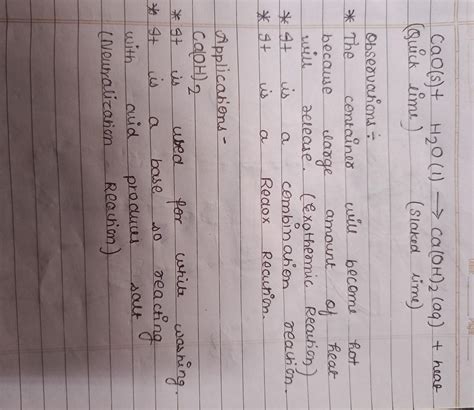 CaO(s) + H2O(l) → Ca(OH)2(aq) + heat
(Quick lime) (Slaked lime)
Observations:-
* The container will become hot
because large amount of heat
will release. (Exothermic Reaction)
* It is a combination reaction.
* It is a Redox Reaction.
Applications -
Ca(OH)2
* It is used for white washing.
* It is a base so reacting
with acid produces salt
(Neutralization Reaction)